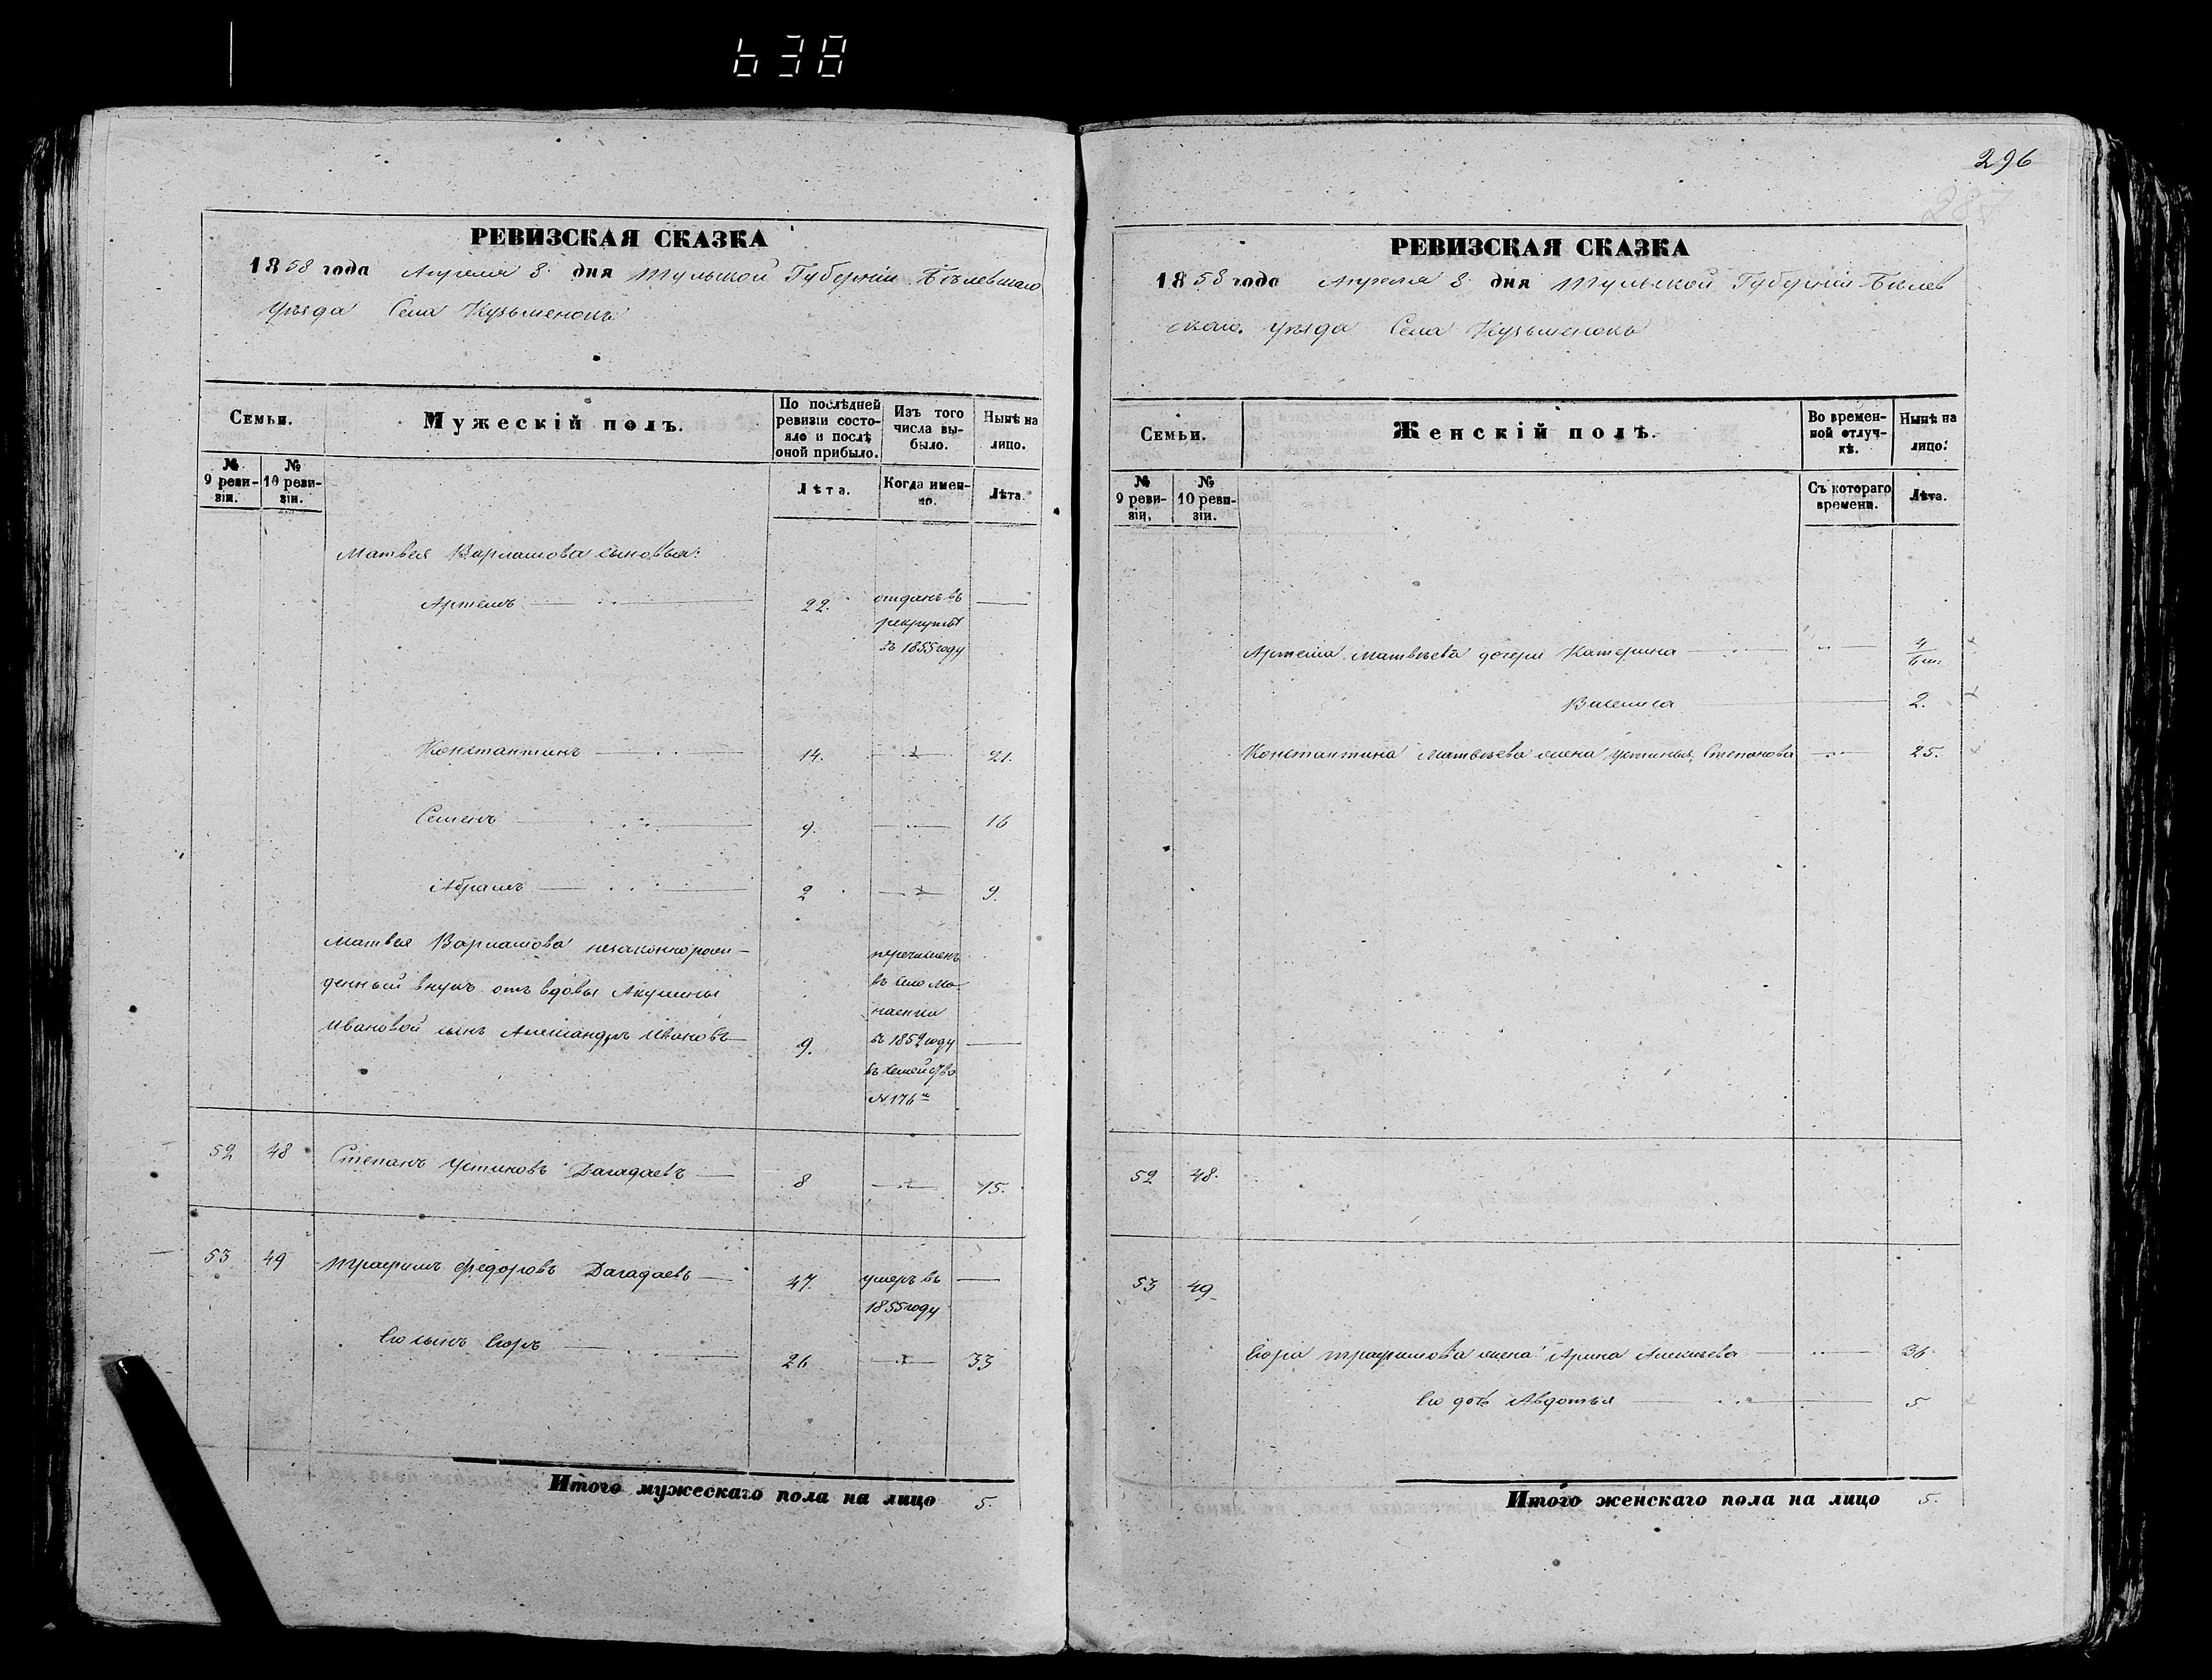 638
РЕВИЗСКАЯ СКАЗКА
1858 года Апреля 8 дня Тульской Губернiи Бѣлевскаго
Уѣзда Села Кузьменокъ
Семьи.
Мужескiй полъ.
По послѣдней ревизiи состояло и послѣ оной прибыло.
Изъ того числа выбыло.
Нынѣ на лицо.
№ 9 ревизiи.
№ 10 ревизiи.
Лѣта.
Когда именно.
Лѣта.
Матвея Варламова сыновья:
Артемъ 22. отданъ въ
рекруты
въ 1855 году
Константинъ 14. 21.
Семенъ 9. 16
Абрамъ 2 9.
Матвея Варламова незаконнорож-
денный внукъ отъ вдовы Акулины
Ивановой сынъ Александръ Ивановъ 9.
перечисленъ
въ село
въ 1852 году
въ семейство
№ 176
52 48 Степанъ Устиновъ Дагадаевъ 8 15.
53 49 Трафимъ Федоровъ Дагадаевъ 47. умеръ въ
1855 году
Его сынъ Егоръ 26 33
Итого мужескаго пола на лицо 5.
296
287
РЕВИЗСКАЯ СКАЗКА
1858 года Апреля 8 дня Тульской Губернiи Белев
скаго уѣзда Села Кузьменокъ
Семьи.
Женскiй полъ.
Во временной отлучкѣ.
Нынѣ на лицо.
№ 9 ревизiи.
№ 10 ревизiи.
Съ котораго времени.
Лѣта.
Артема Матвѣева дочери Катерина 4/6 м.
Василиса 2.
Константина Матвѣева жена Устинья Степанова 25.
52 48.
53 49
Егора Трафимова жена Арина Алексѣева 36
Его дочь Авдотья 5
Итого женскаго пола на лицо 5.